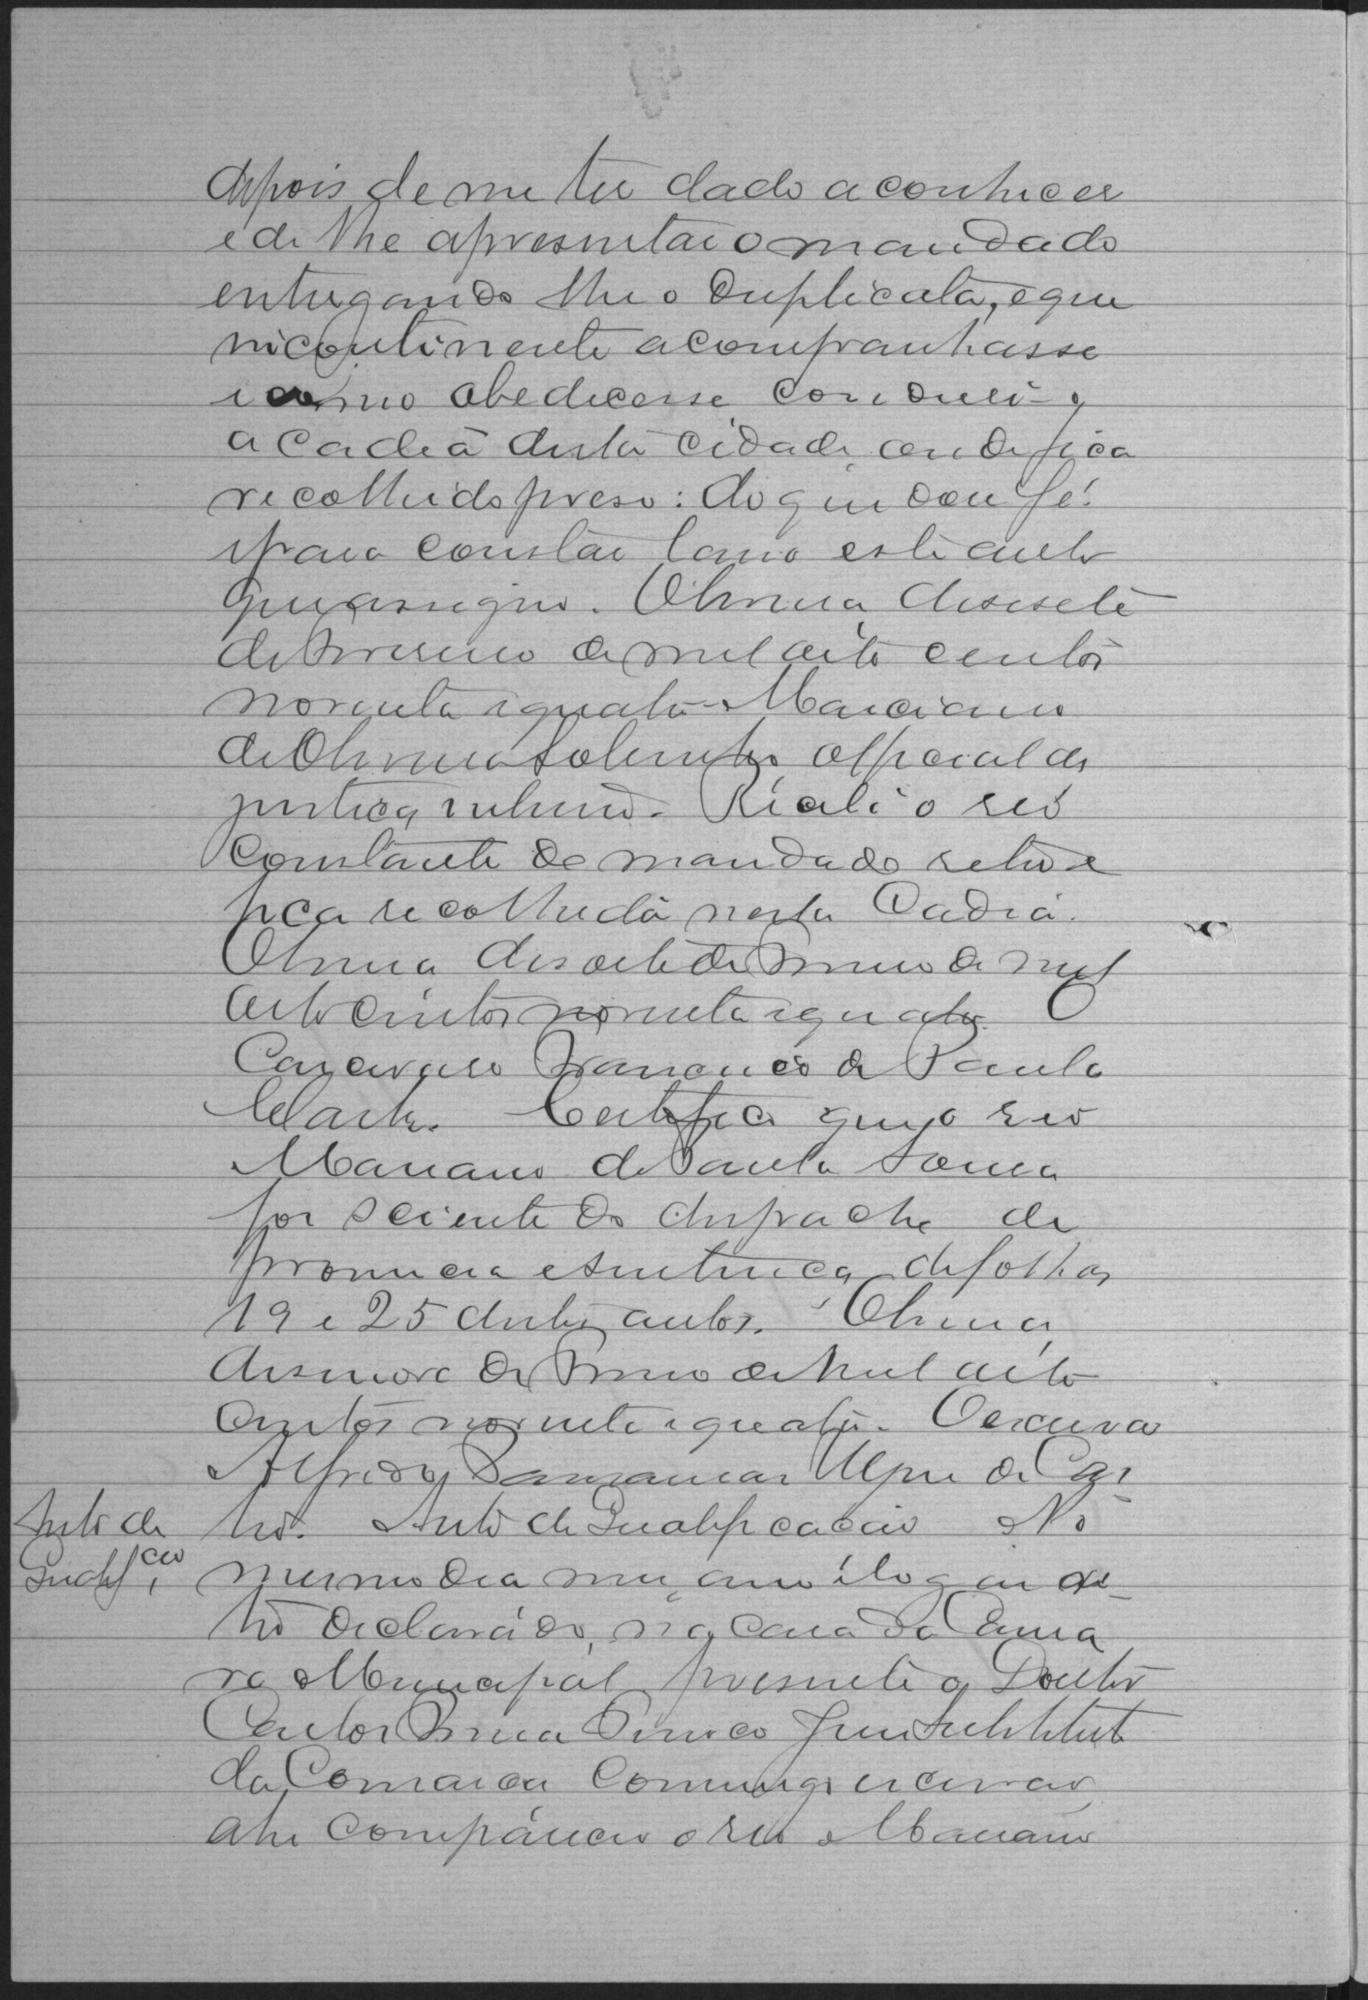 depois de me ter dado a conhecer
e de lhe apresentar o mandado
entregando lhe o duplicata, e que
incontinente acompanhasse
e como obedecesse conduzi-o
a cadeia desta cidade onde fica
recolhido preso: do que dou fé.
e para constar lavro este auto
que assigno. Olimeira deseseis
de Fevereiro de mil oito centos
noventa e quatro Marciano
de official de
justiça subscrevi. Recebi o reo
constante do mandado retro e
fica recolhido nesta Cadeia.
desoito de de mil
oito centos noventa e quatro. O
Carcereiro Francisco de Paula
Certifico que o reo
Mariano de Paula Souza
foi sciente do despacho de
pronuncia e sentença de folhas
19 e 25 destes autos.
desenove de de mil oito
centos noventa e quatro. O escrivão
Alfredo de Cas
tro. Auto de Qualificação No
Auto de
Qualif.cão
mesmo dia mez anno e lugar re-
tro declarado, na casa da Cama
ra Municipal presente o Doutor
Juiz Substituto
da Comarca commigo escrivão
ahi compareceu o reo Mariano